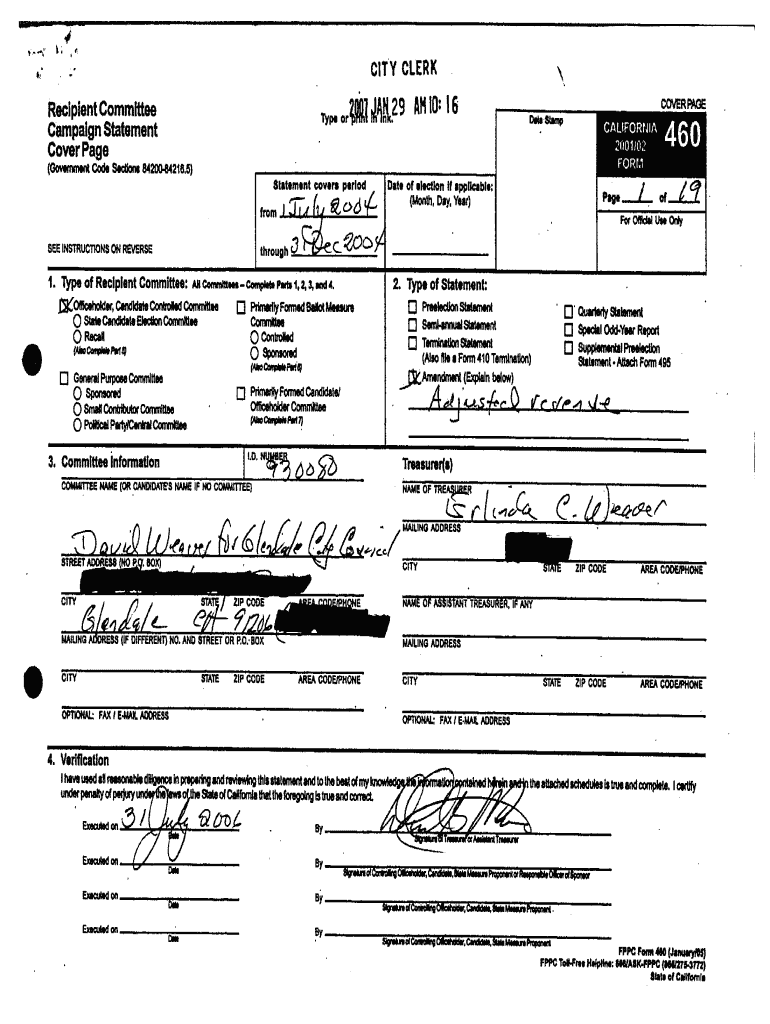 CITY CLERK
2007 JAN 29 AM 10: 16
Recipient Committee
Campaign Statement
Cover Page
(Government Code Sections 84200-84216.5)
Type or print in ink.
Date Stamp
COVER PAGE
CALIFORNIA
2001/02
FORM
460
Statement covers period
from 1 July 2004
through 31 Dec 2004
Date of election if applicable:
(Month, Day, Year)
Page 1 of 19
For Official Use Only
SEE INSTRUCTIONS ON REVERSE
1. Type of Recipient Committee: All Committees – Complete Parts 1, 2, 3, and 4.
Officeholder, Candidate Controlled Committee
State Candidate Election Committee
Recall
(Also Complete Part 5)
General Purpose Committee
Sponsored
Small Contributor Committee
Political Party/Central Committee
Primarily Formed Ballot Measure
Committee
Controlled
Sponsored
(Also Complete Part 6)
Primarily Formed Candidate/
Officeholder Committee
(Also Complete Part 7)
2. Type of Statement:
Preelection Statement
Semi-annual Statement
Termination Statement
(Also file a Form 410 Termination)
Amendment (Explain below)
Quarterly Statement
Special Odd-Year Report
Supplemental Preelection
Statement - Attach Form 495
Adjusted revenue
3. Committee Information
I.D. NUMBER
930080
COMMITTEE NAME (OR CANDIDATE'S NAME IF NO COMMITTEE)
David Weaver for Glendale City Council
STREET ADDRESS (NO P.O. BOX)
CITY STATE ZIP CODE AREA CODE/PHONE
Glendale CA 91206
MAILING ADDRESS (IF DIFFERENT) NO. AND STREET OR P.O. BOX
CITY STATE ZIP CODE AREA CODE/PHONE
OPTIONAL: FAX / E-MAIL ADDRESS
Treasurer(s)
NAME OF TREASURER
Erlinda C. Weaver
MAILING ADDRESS
CITY STATE ZIP CODE AREA CODE/PHONE
NAME OF ASSISTANT TREASURER, IF ANY
MAILING ADDRESS
CITY STATE ZIP CODE AREA CODE/PHONE
OPTIONAL: FAX / E-MAIL ADDRESS
4. Verification
I have used all reasonable diligence in preparing and reviewing this statement and to the best of my knowledge the information contained herein and in the attached schedules is true and complete. I certify
under penalty of perjury under the laws of the State of California that the foregoing is true and correct.
Executed on 31 July 2006
Date
By
Signature of Treasurer or Assistant Treasurer
Executed on
Date
By
Signature of Controlling Officeholder, Candidate, State Measure Proponent or Responsible Officer of Sponsor
Executed on
Date
By
Signature of Controlling Officeholder, Candidate, State Measure Proponent
Executed on
Date
By
Signature of Controlling Officeholder, Candidate, State Measure Proponent
FPPC Form 460 (January/05)
FPPC Toll-Free Helpline: 866/ASK-FPPC (866/275-3772)
State of California